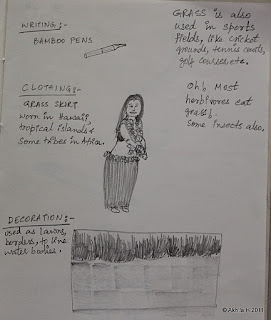 WRITING:-
BAMBOO PENS
GRASS is also
used in sports
fields, like cricket
grounds, tennis courts,
golf courses etc.
CLOTHING:-
GRASS SKIRT
worn in Hawaii,
tropical islands &
some tribes in Africa.
Oh! Most
herbivores eat
grass!
Some insects also.
DECORATION:-
used as lawns,
borders, to line
water bodies.
© Akhila H 2011